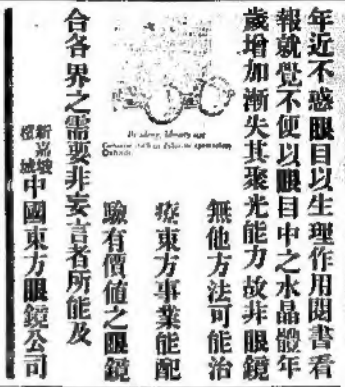 年近不惑眼目以生理作用閱書看
報就覺不便以眼目中之水晶體年
歲增加漸失其聚光能力故非眼鏡
無他方法可能治
療東方事業能配
驗有價值之眼鏡
合各界之需要非妄言者所能及
新嘉坡
檳城
中國東方眼鏡公司